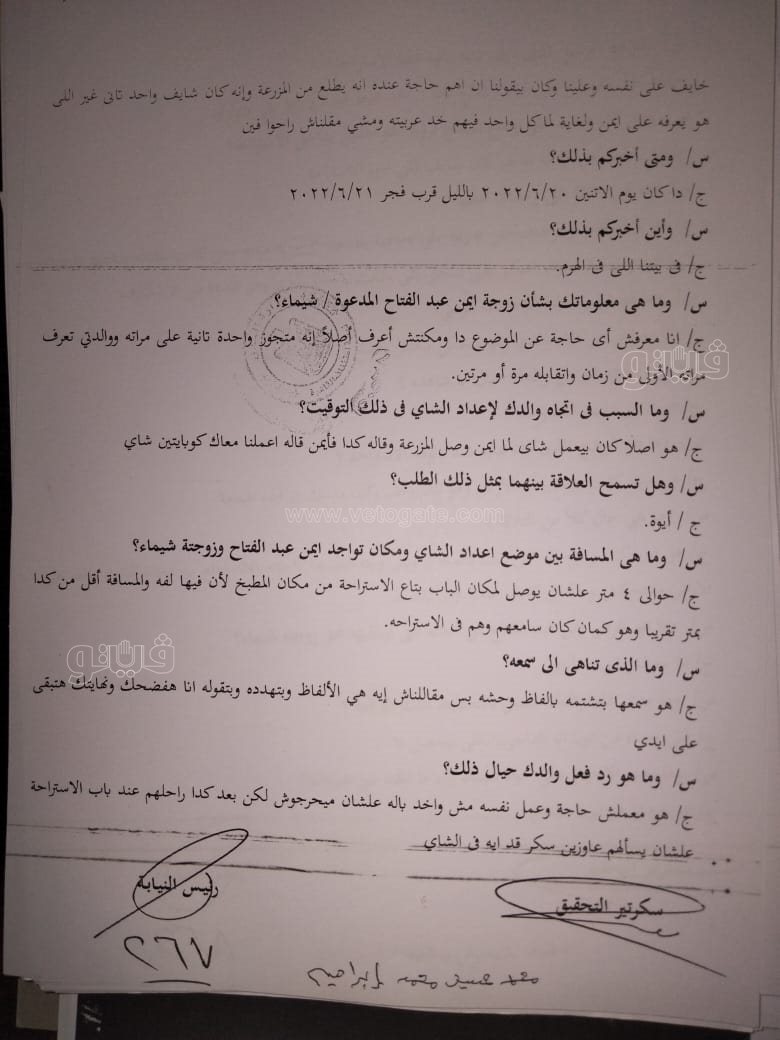 خايف على نفسه وعلينا وكان بيقولنا ان اهم حاجة عنده انه يطلع من المزرعة وإنه كان شايف واحد تانى غير اللى
هو يعرفه على ايمن ولغاية لما كل واحد فيهم خد عربيته ومشي مقلناش راحوا فين
س/ ومتى أخبركم بذلك؟
ج/ دا كان يوم الاتنين ٢٠٢٢/٦/٢٠ بالليل قرب فجر ٢٠٢٢/٦/٢١
س/ وأين أخبركم بذلك؟
ج/ فى بيتنا اللى فى الهرم.
س/ وما هى معلوماتك بشأن زوجة ايمن عبد الفتاح المدعوة / شيماء؟
ج/ انا معرفش أى حاجة عن الموضوع دا ومكنتش أعرف أصلاً إنه متجوز واحدة تانية على مراته ووالدتي تعرف
مراته الأولى من زمان واتقابله مرة أو مرتين.
س/ وما السبب فى اتجاه والدك لإعداد الشاي فى ذلك التوقيت؟
ج/ هو اصلا كان بيعمل شاى لما ايمن وصل المزرعة وقاله كدا فأيمن قاله اعملنا معاك كوبايتين شاي
س/ وهل تسمح العلاقة بينهما بمثل ذلك الطلب؟
ج / أيوة.
www.vetogate.com
س/ وما هى المسافة بين موضع اعداد الشاي ومكان تواجد ايمن عبد الفتاح وزوجتة شيماء؟
ج/ حوالى ٤ متر علشان يوصل لمكان الباب بتاع الاستراحة من مكان المطبخ لأن فيها لفه والمسافة أقل من كدا
بمتر تقريبا وهو كمان كان سامعهم وهم فى الاستراحه.
س/ وما الذى تناهى الى سمعه؟
ج/ هو سمعها بتشتمه بالفاظ وحشه بس مقاللناش إيه هي الألفاظ وبتهدده وبتقوله انا هفضحك ونهايتك هتبقى
على ايدي
س/ وما هو رد فعل والدك حيال ذلك؟
ج/ هو معملش حاجة وعمل نفسه مش واخد باله علشان ميحرجوش لكن بعد كدا راحلهم عند باب الاستراحة
علشان يسألهم عاوزين سكر قد ايه فى الشاي
سكرتير التحقيق
رئيس النيابة
٢٦٧
محمد حسين محمد إبراهيم
ڤيتو
ڤيتو